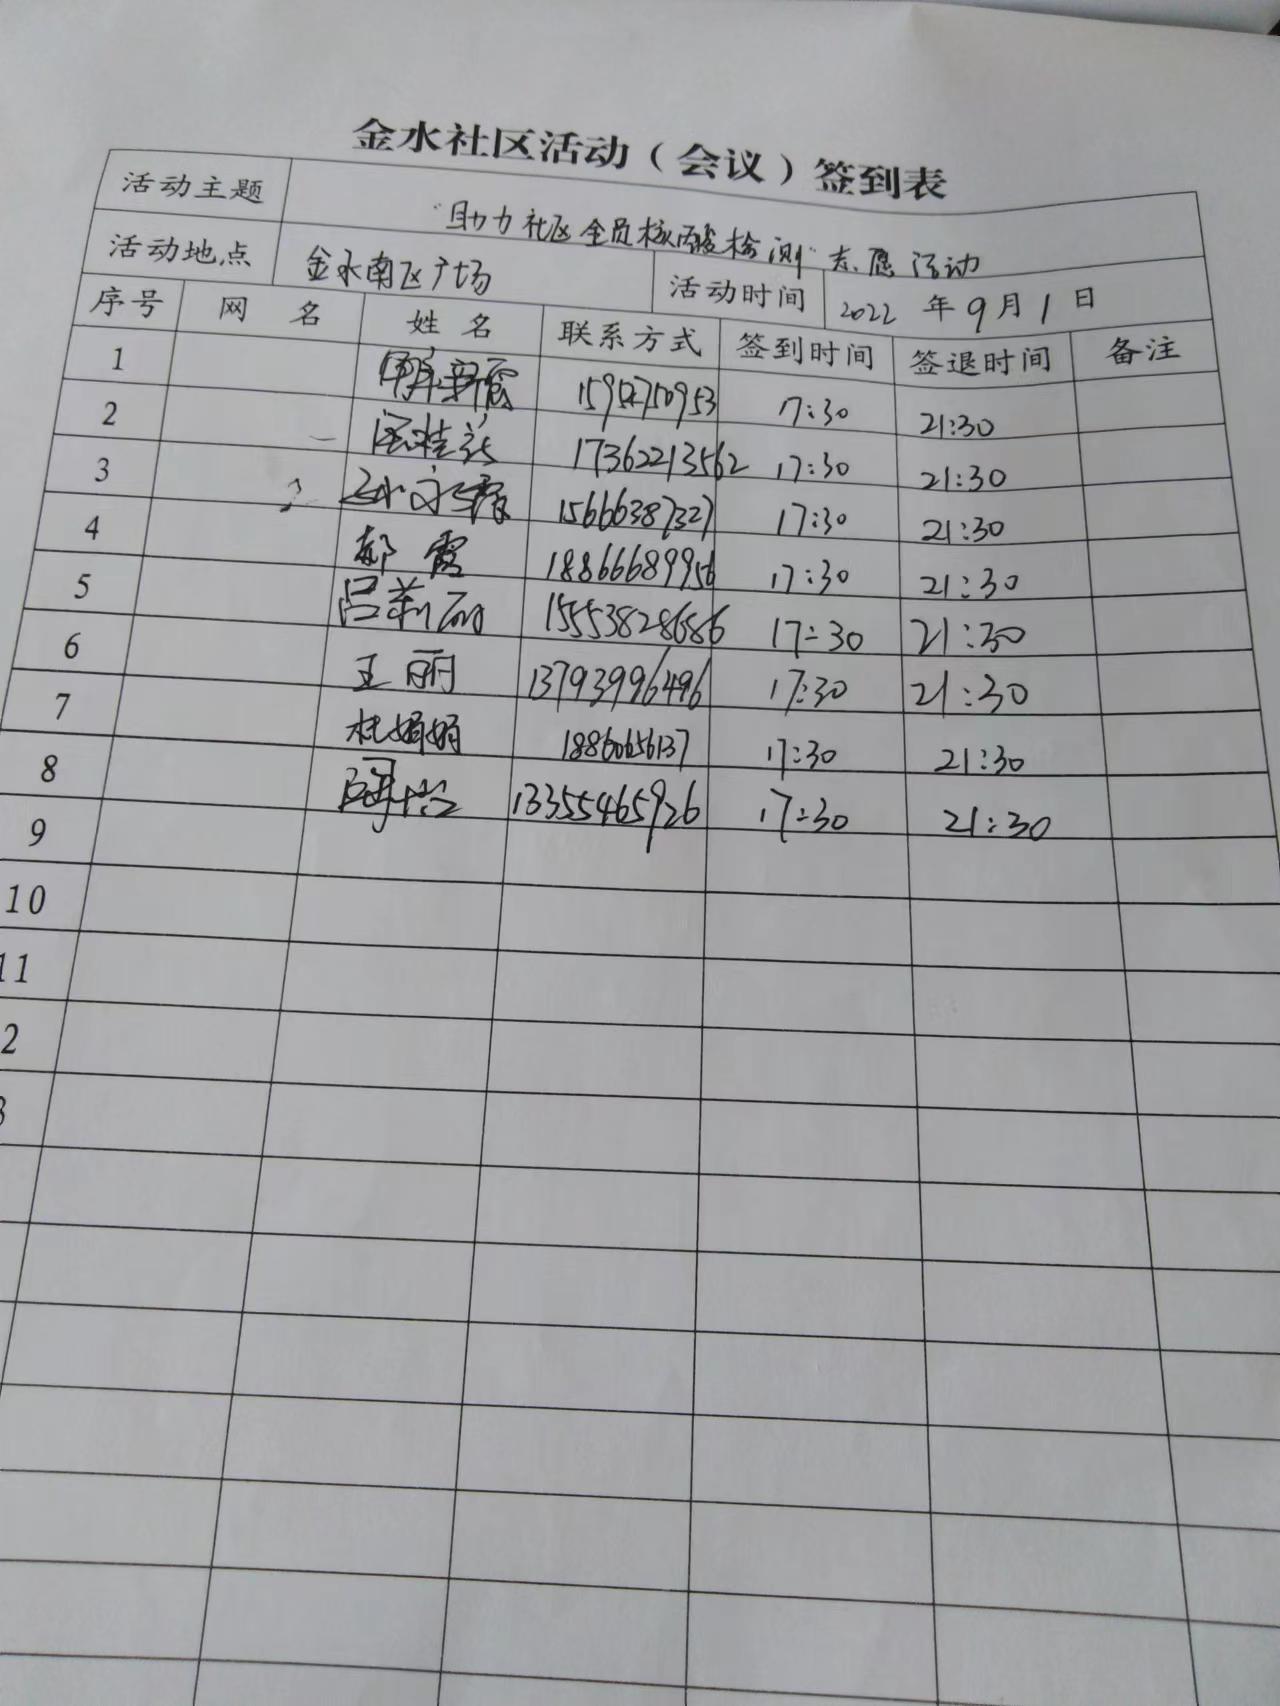 金水社区活动（会议）签到表
活动主题 "助力社区全员核酸检测"志愿活动
活动地点 金水南区广场 活动时间 2022 年 9 月 1 日
序号 网 名 姓 名 联系方式 签到时间 签退时间 备注
1 17:30 21:30
2 17362213562 17:30 21:30
3 15666387327 17:30 21:30
4 郝霞 18866689956 17:30 21:30
5 15553828686 17:30 21:30
6 王丽 13793996496 17:30 21:30
7 杜娟娟 18860656137 17:30 21:30
8 13355465926 17:30 21:30
9
10
11
2
3